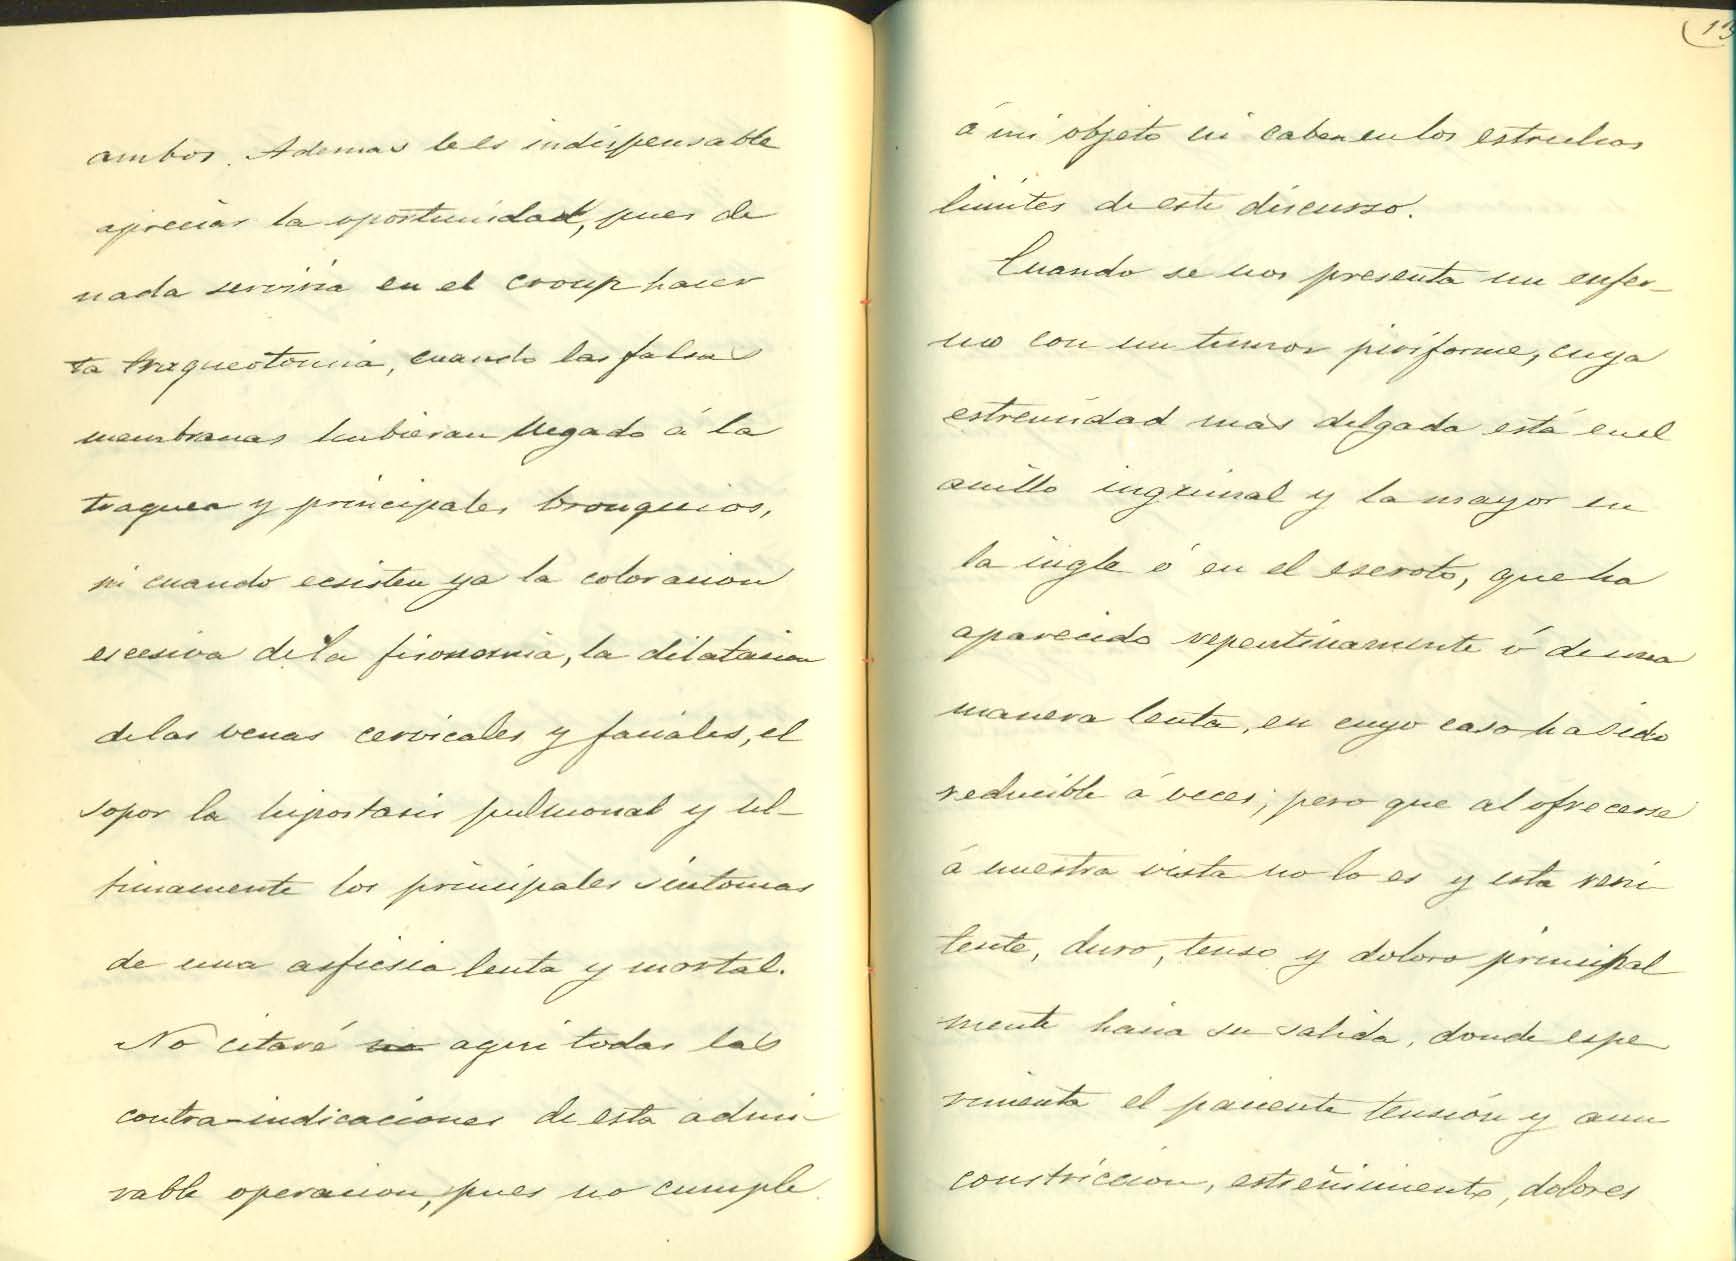 ambos. Ademas le es indispensable
apreciar la oportunidad, pues de
nada serviria en el croup hacer
la traqueotomia, cuando las falsas
membranas hubieran llegado á la
traquea y principales bronquios,
ni cuando ecsisten ya la coloracion
escesiva de la fisonomia, la dilatacion
de las venas cervicales y faciales, el
sopor la hipostasis pulmonal y ul-
timamente los principales síntomas
de una asficsia lenta y mortal.
No citaré no aqui todas las
contra-indicaciones de esta admi-
rable operacion, pues no cumple
á mi objeto ni caben en los estrechos
límites de este discurso.
Cuando se nos presenta un enfer-
mo con un tumor piriforme, cuya
estremidad mas delgada está en el
anillo inguinal y la mayor en
la ingle ó en el escroto, que ha
aparecido repentinamente ó de una
manera lenta, en cuyo caso ha sido
reducible á veces; pero que al ofrecerse
á nuestra vista no lo es y esta reni-
tente, duro, tenso y doloro principal
mente hacia su salida, donde espe
rimenta el paciente tensión y aun
constriccion, estreñimiento, dolores